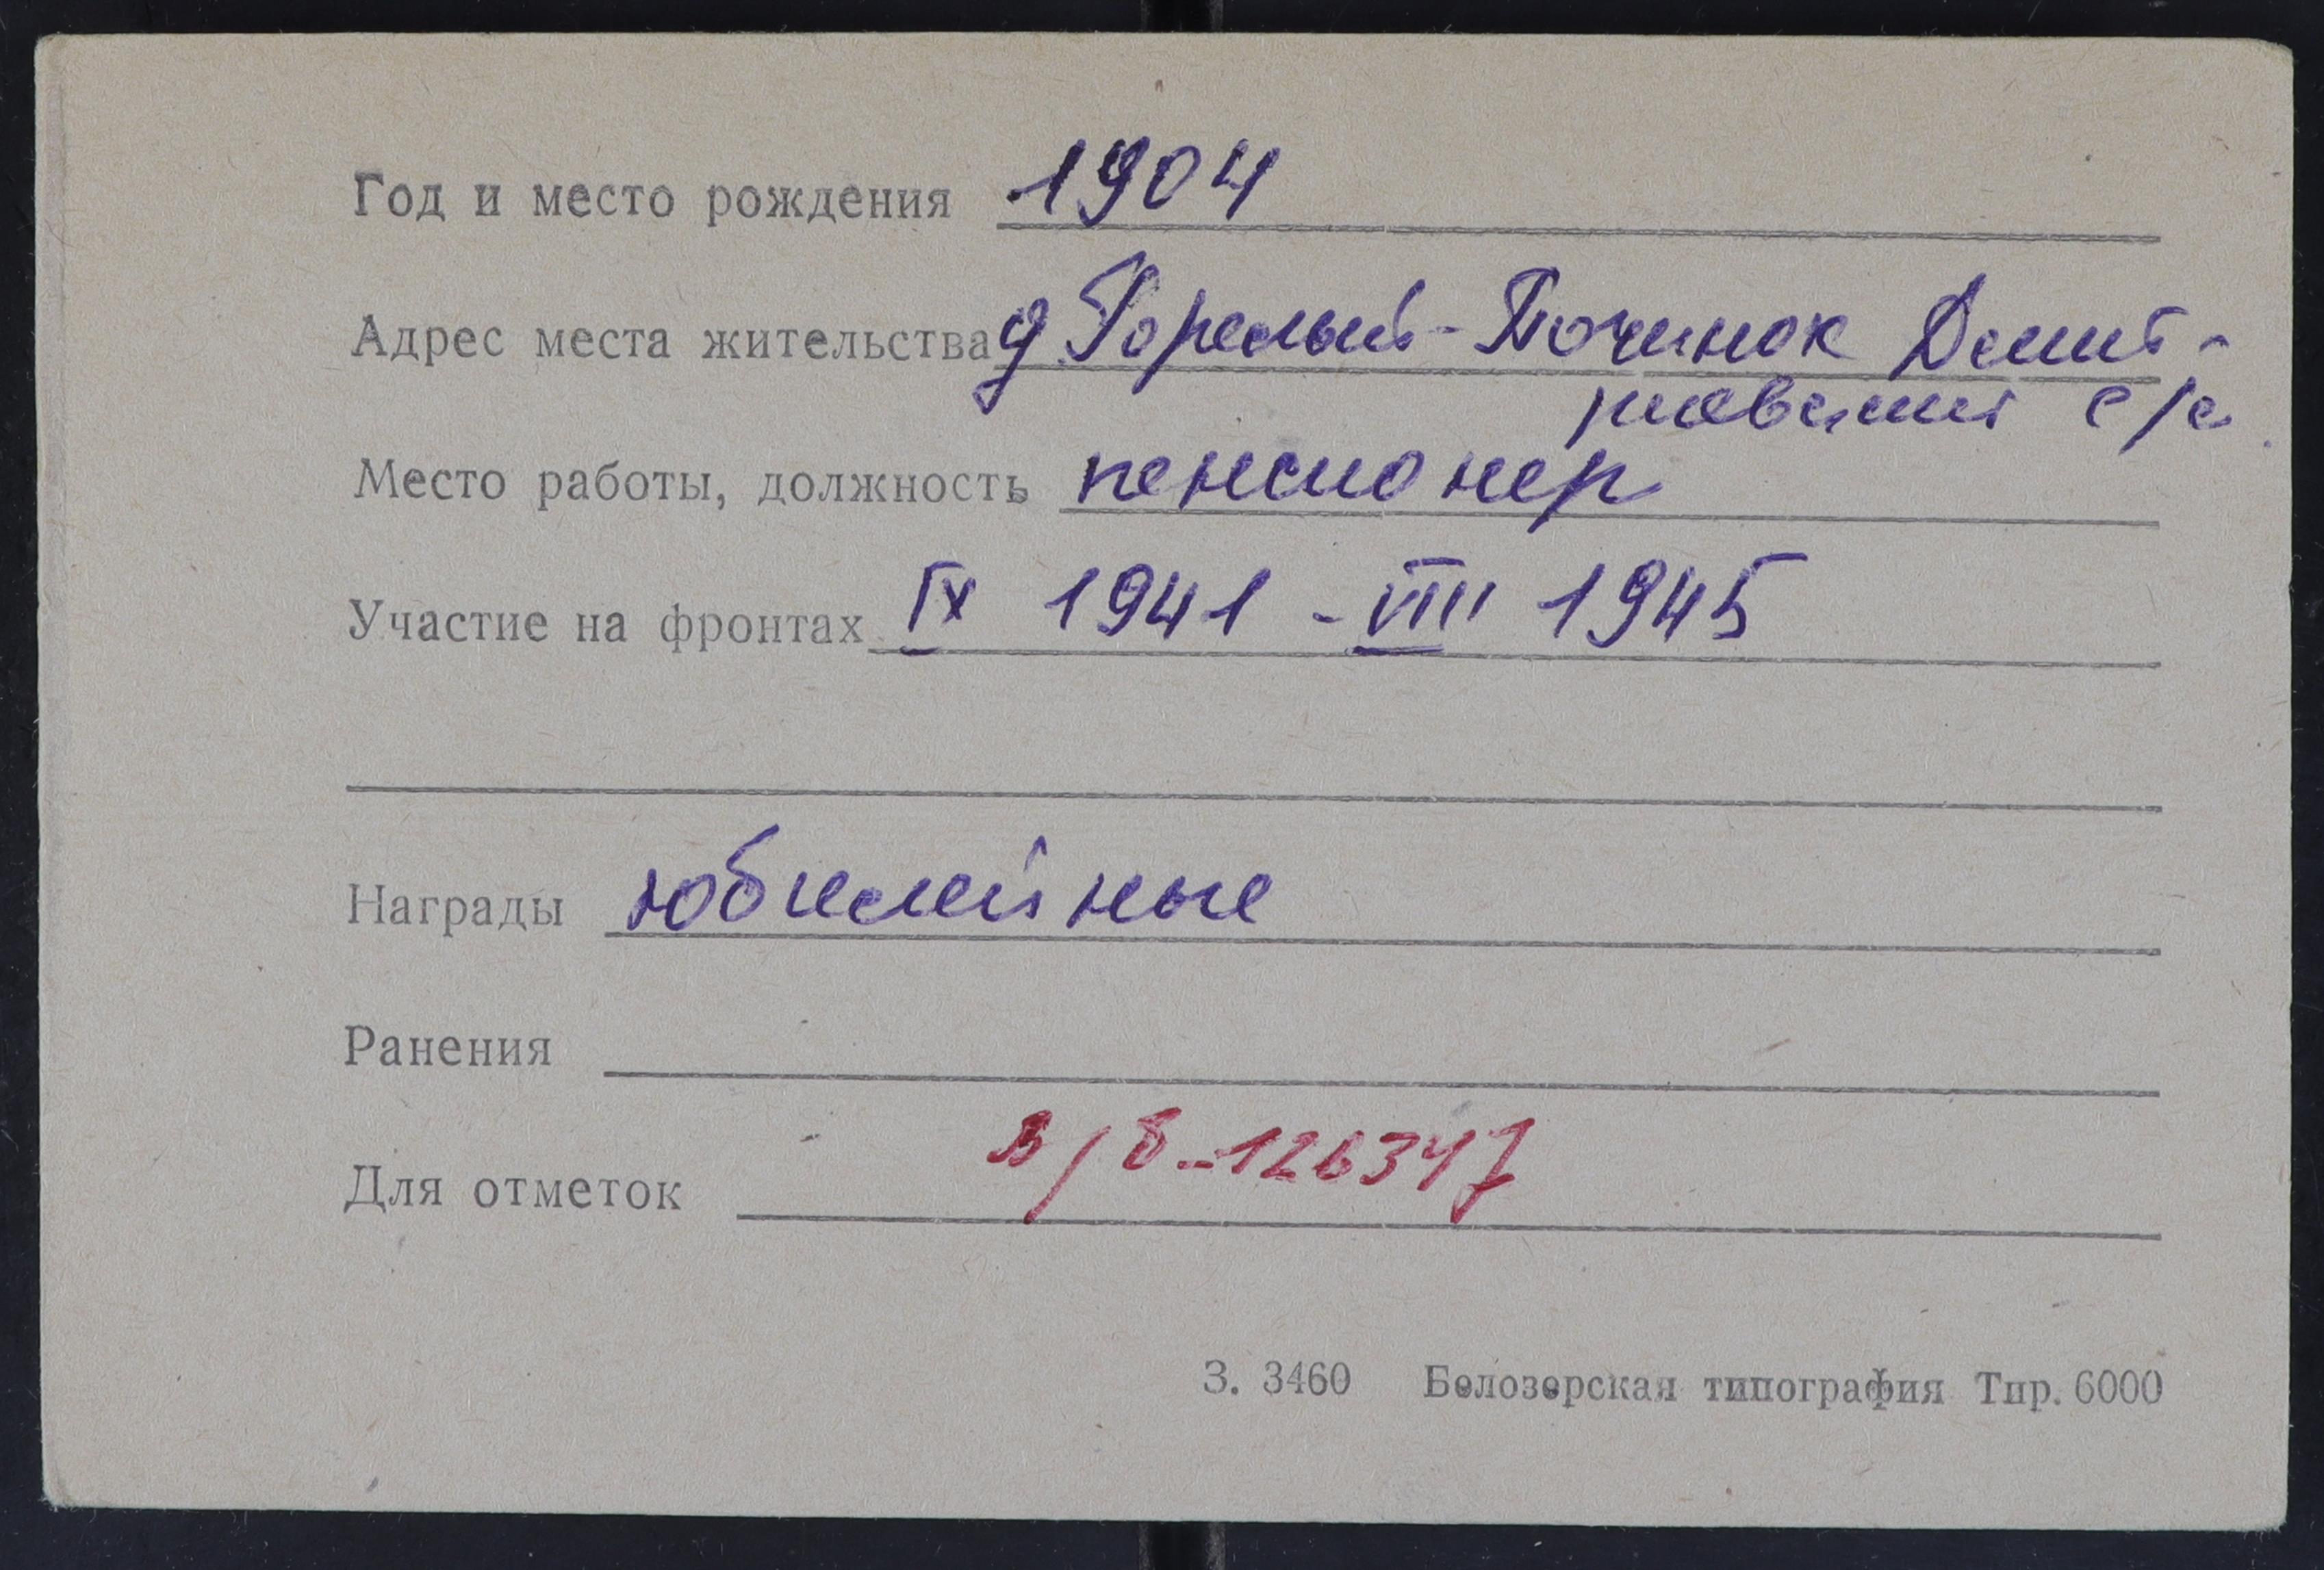 Год и место рождения 1904
Адрес места жительства д. Горелый-Починок Дмит-
риевский с/с
Место работы, должность пенсионер
Участие на фронтах IX 1941 - VIII 1945
Награды юбилейные
Ранения
Для отметок в/б-126347
З. 3460 Белозерская типография Тир. 6000